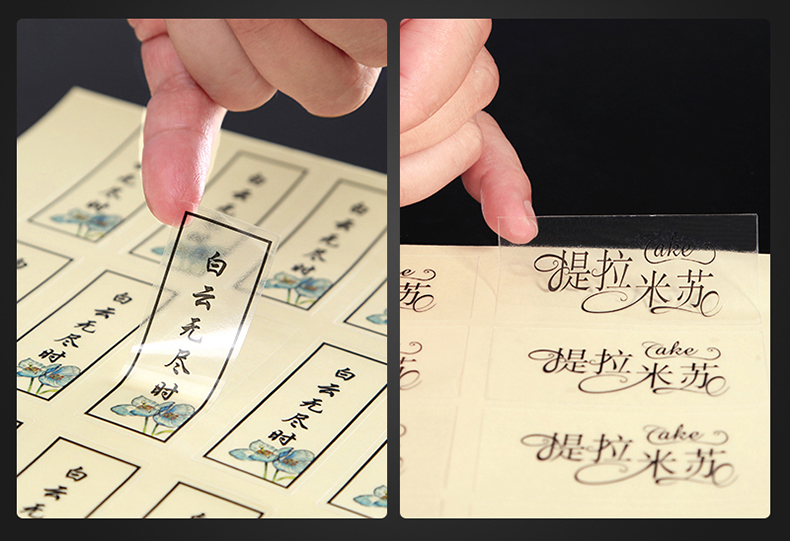 白云无尽时
白云无尽时
白云无尽时
白云无尽时
白云无尽时
白云无尽时
白云
Cake
提拉米苏
Cake
提拉米苏
Cake
提拉米苏
苏